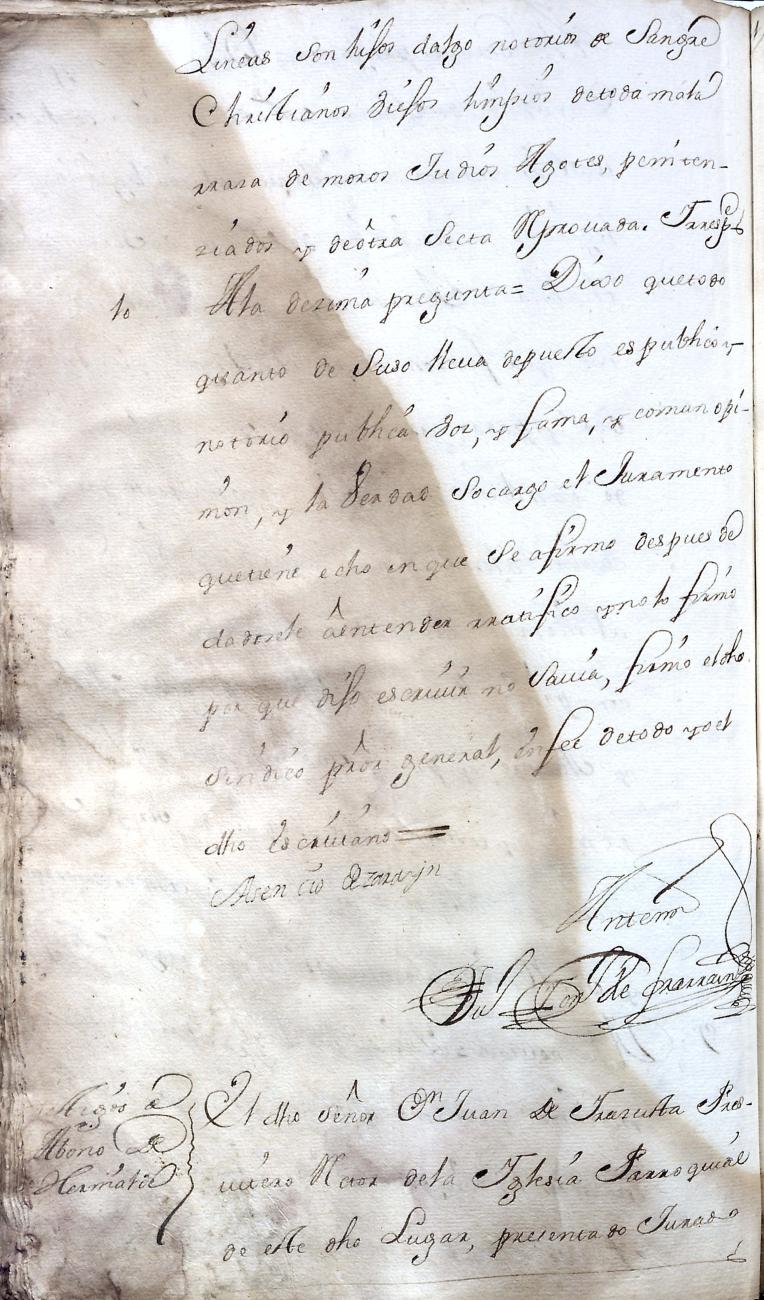 Lineas son hijos dalgo notorios de Sangre
Christianos viejos limpios de toda mala
rraza de moros Judios Agotes, peniten-
ziados y de otra secta Reprouada. y rresp.de
10 A la dezima pregunta= Dixo que todo
quanto de suso lleua depuesto es publico y
notorio publica voz, y fama, y comun opi-
nion, y la Verdad Socargo el Juramento
que tiene echo en que Se afirmo despues de
dadosele a entender rratifico y no lo firmo
por que dijo escriuir no Sauia, firmo el dho
sindico pror general, en fee de todo yo el
dho escriuano=
Asencio
Antemi
de Irarrain
Abono de
El dho señor Dn Juan de Pres-
uitero Retor de la Yglesia Parroquial
de este dho Lugar, presentado Jurado